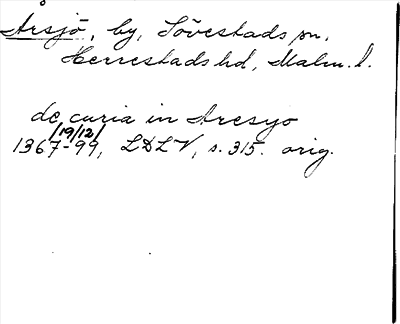 Årsjö, by, Sövestads sn,
Herrestads hd, Malm. l.
de curia in Aresyo
/19/12/
1367-99, LDLV, s. 315. orig.